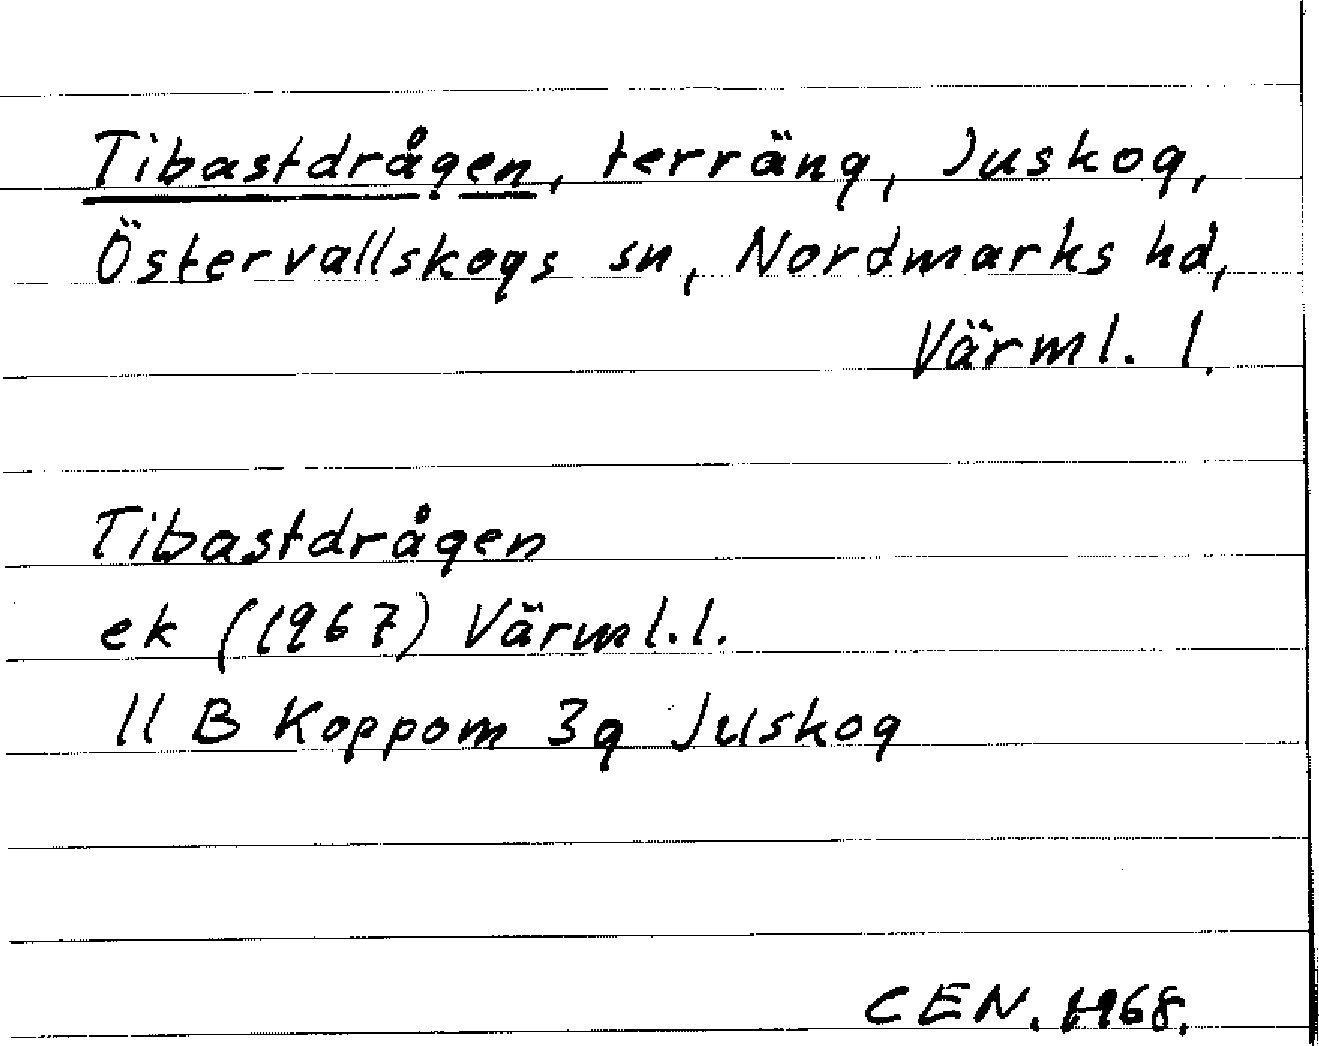 Tibastdrågen, terräng, Juskog,
Östervallskogs sn, Nordmarks hd,
Värml. l.
Tibastdrågen
ek (1967) Värml.l.
11 B Koppom 3g Juskog
CEN. 1968.